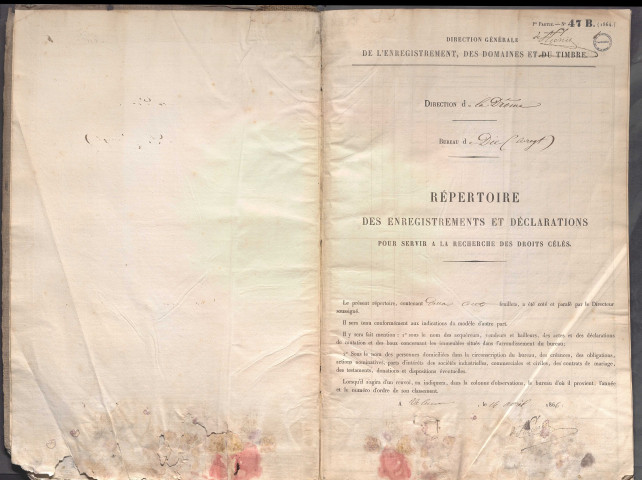 1re Partie. — No 47 B. (1864)
DIRECTION GÉNÉRALE
DE L'ENREGISTREMENT, DES DOMAINES ET DU TIMBRE.
DIRECTION de la Drôme
BUREAU de Die
RÉPERTOIRE
DES ENREGISTREMENTS ET DÉCLARATIONS
POUR SERVIR A LA RECHERCHE DES DROITS CÉLÉS.
Le présent répertoire, contenant Deux cents feuillets, a été coté et parafé par le Directeur
soussigné.
Il sera tenu conformément aux indications du modèle d'autre part.
Il y sera fait mention : 1o sous le nom des acquéreurs, vendeurs et bailleurs, des actes et des déclarations
de mutation et des baux concernant les immeubles situés dans l'arrondissement du bureau;
2o Sous le nom des personnes domiciliées dans la circonscription du bureau, des créances, des obligations,
actions nominatives, parts d'intérêts des sociétés industrielles, commerciales et civiles, des contrats de mariage,
des testaments, donations et dispositions éventuelles.
Lorsqu'il s'agira d'un renvoi, on indiquera, dans la colonne d'observations, le bureau d'où il provient, l'année
et le numéro d'ordre de son classement.
A Valence le 14 avril 1866